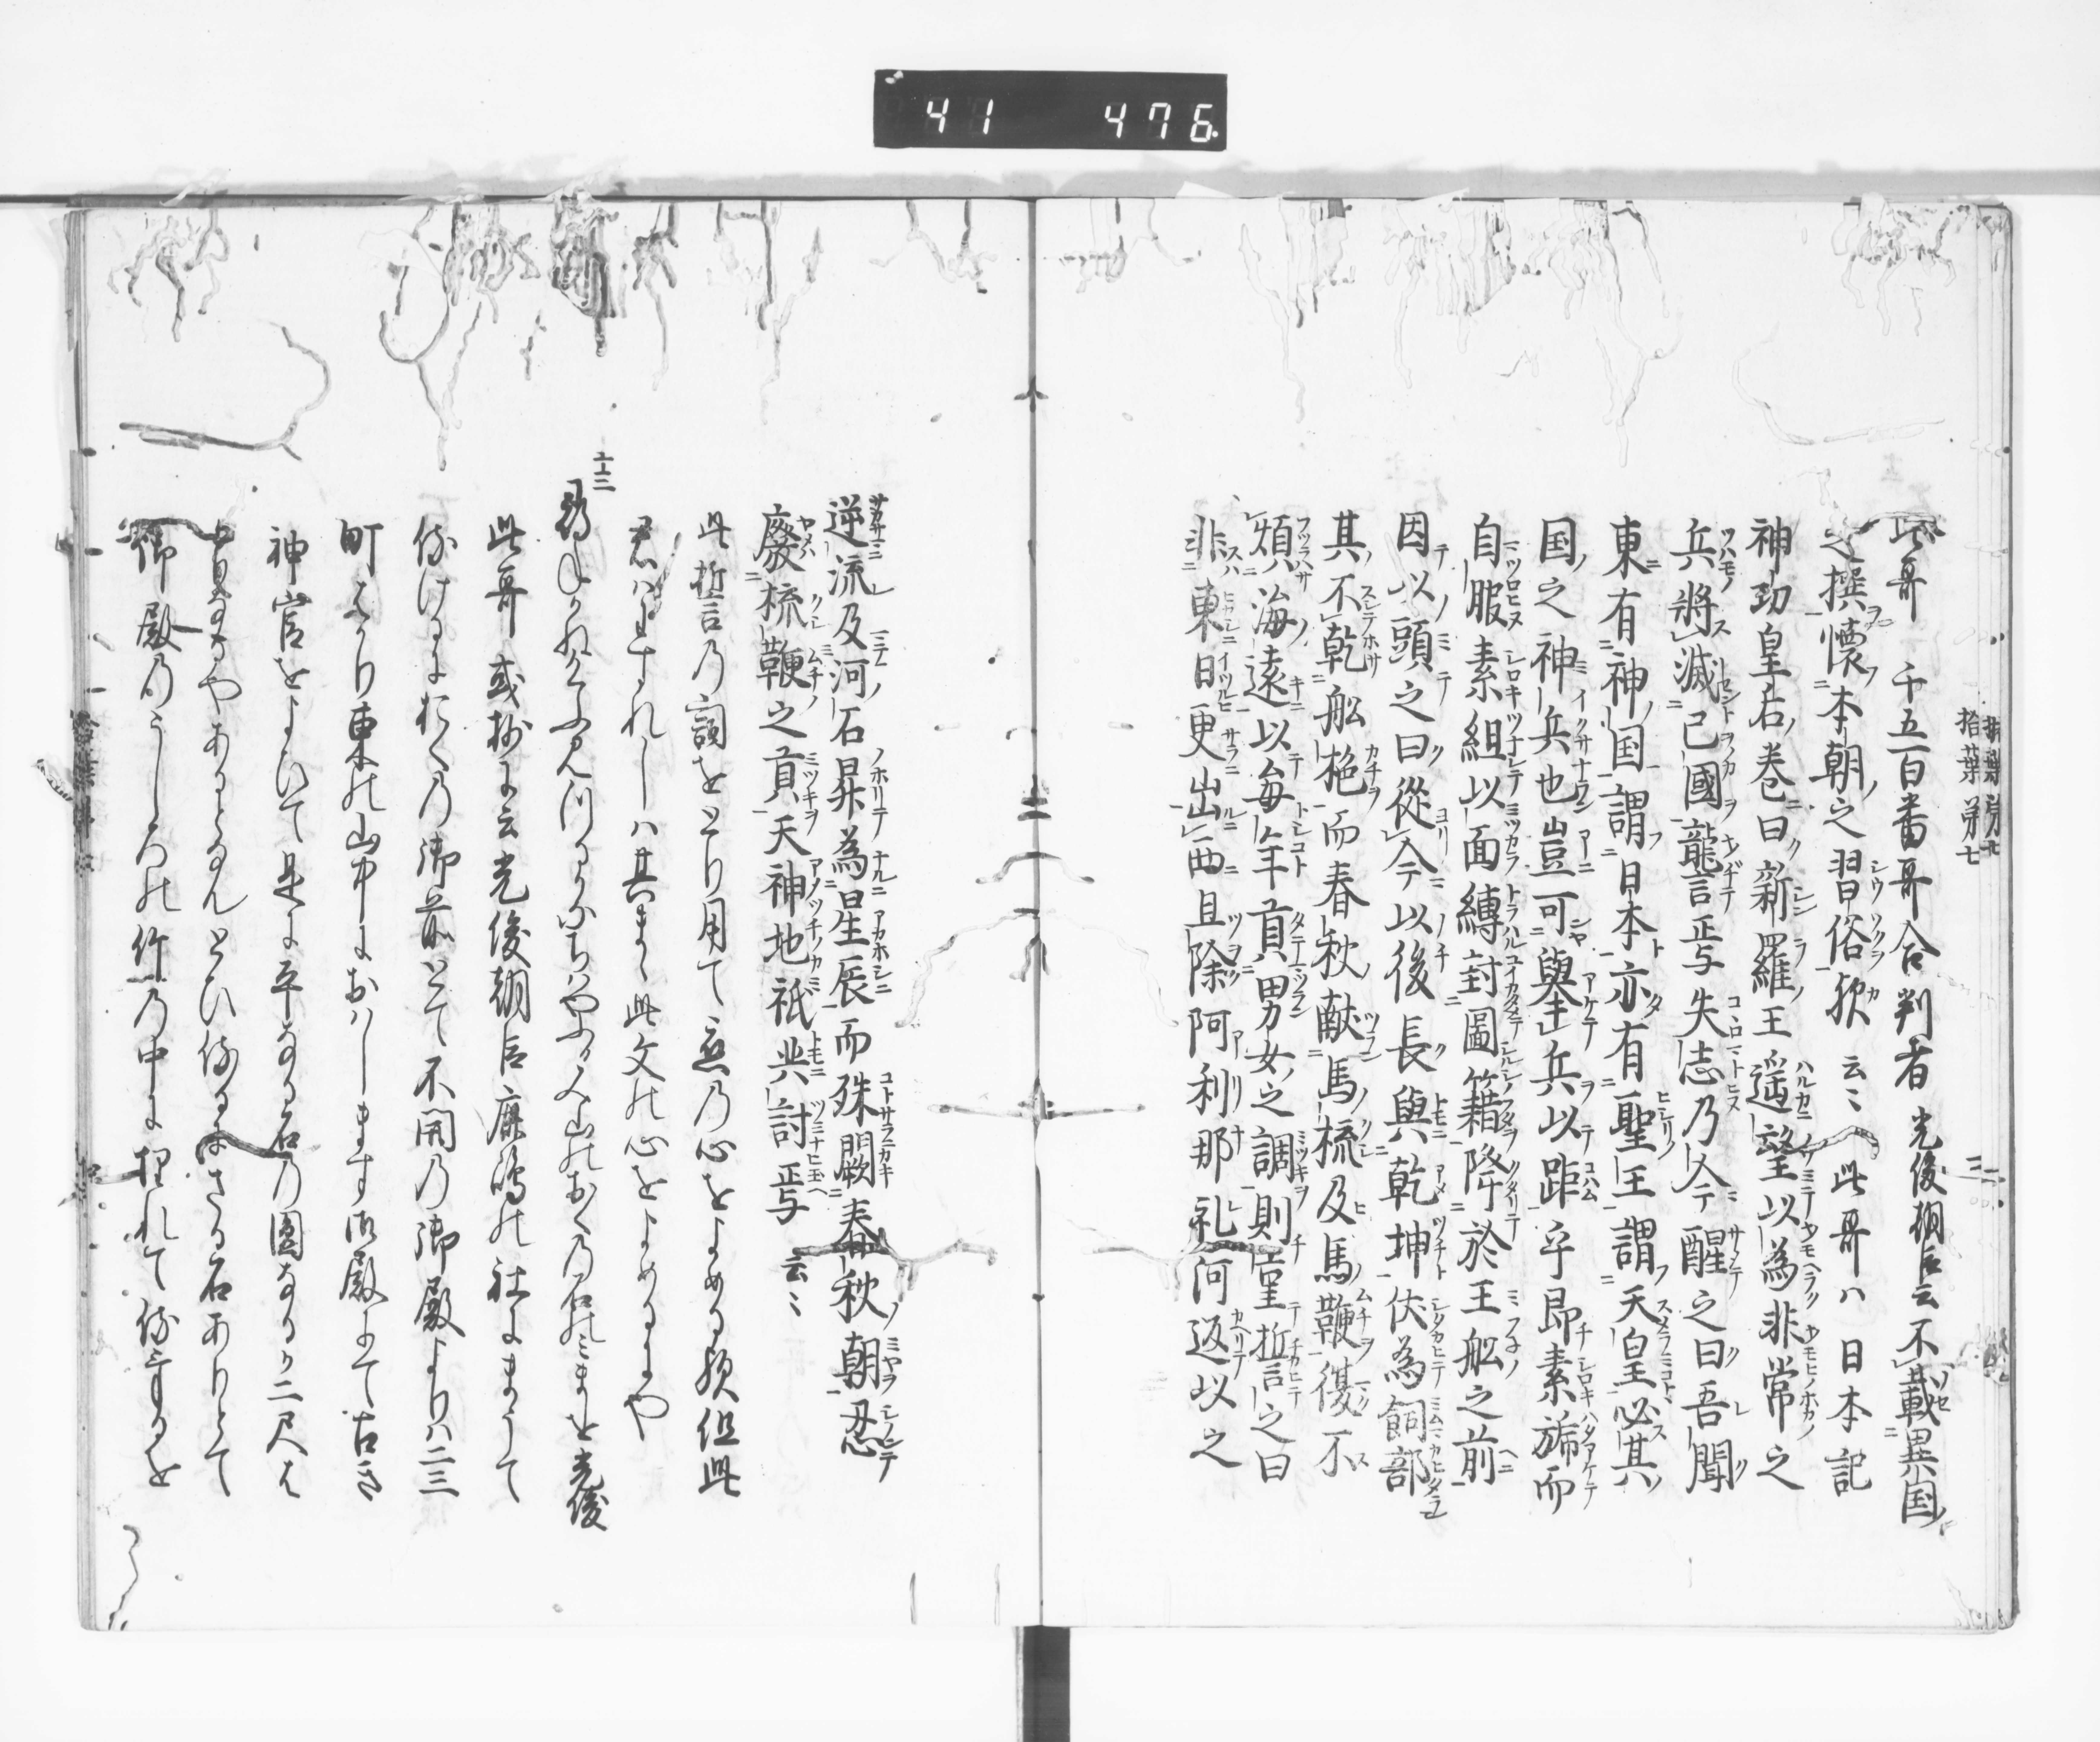 41 476
拾葉第七
此哥 千五百番哥合判者光俊朝臣云不載異国
之撰懐本朝之習俗歟云〻此哥ハ日本記
神功皇后巻曰新羅王遥望以為非常之
兵将滅己國讋焉失志乃今醒之曰吾聞
東有神国謂日本亦有聖王謂天皇必其
国之神兵也豈可擧兵以距乎即素旆而
自服素組以面縛封圖籍降於王舩之前
因以頭之曰從今以後長與乾坤伏為飼部
其不乾舩柂而春秋獻馬梳及馬鞭復不
煩海遠以毎年貢男女之調則重誓之曰
非東日更出西且除阿利那礼河返以之
逆流及河石昇為星辰而殊闕春秋朝忍
廢梳鞭之貢天神地祇共討焉云〻
此誓言乃詞をとり用て恋乃心をよめる歟但此
君ハわすれしハ其まゝ此文の心をよめるにや
十三
此哥或抄に云光俊朝臣鹿嶋の社にまうて
侍けるにおくの御前とて不開乃御殿よりハ二三
町はかり東の山中におハします御殿にて古き
神官をよひて是に平なる石乃圓なるか二尺は
かりなるやあるらんととひ侍るにさる石ありとて
御殿のうしろの竹の中に埋れて侍けるを